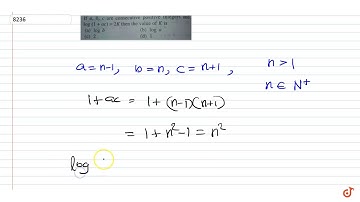 8236
If a, b, c are consecutive positive integers and
log (1 + ac) = 2K then the value of K is
(a) log b (b) log a
(c) 2 (d) 1
a = n-1, b = n, c = n+1, n > 1
n ∈ N⁺
1 + ac = 1 + (n-1)(n+1)
= 1 + n² - 1 = n²
log